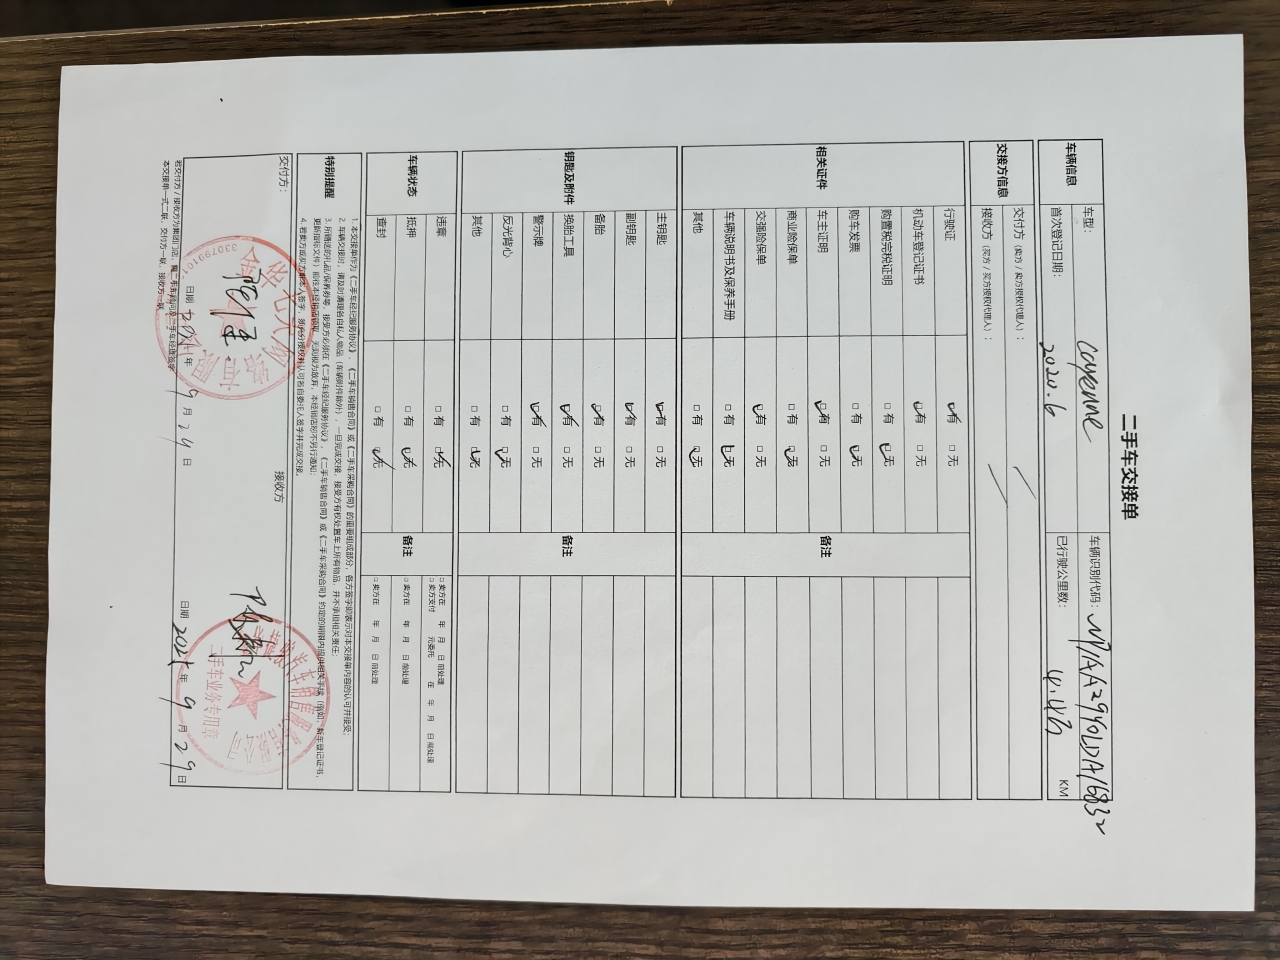 二手车交接单
车辆信息
车型: cayenne
车辆识别代码:
首次登记日期: 2020.6
已行驶公里数: KM
交接方信息
交付方(卖方/卖方授权代理人):
接收方(买方/买方授权代理人):
相关证件
备注
行驶证 ☑有 □无
机动车登记证书 ☑有 □无
购置税完税证明 □有 ☑无
购车发票 □有 ☑无
车主证明 ☑有 □无
商业险保单 □有 ☑无
交强险保单 ☑有 □无
车辆说明书及保养手册 □有 ☑无
其他 □有 ☑无
钥匙及附件
备注
主钥匙 ☑有 □无
副钥匙 ☑有 □无
备胎 ☑有 □无
换胎工具 ☑有 □无
警示牌 ☑有 □无
反光背心 □有 ☑无
其他 □有 ☑无
车辆状态
备注
违章 □有 ☑无
□卖方在 年 月 日前处理
□卖方支付 元委托 在 年 月 日前处理
抵押 □有 ☑无 □卖方在 年 月 日前处理
查封 □有 ☑无 □卖方在 年 月 日前处理
特别提醒
1. 本交接单作为《二手车经纪服务协议》、《二手车销售合同》或《二手车采购合同》的重要组成部分,各方签字即表示对本交接单内容的认可并接受;
2. 车辆交接时,请及时清理各自私人物品(车辆附件除外),一旦完成交接,接受方有权处置车上所有物品,并不承担相关责任;
3. 所赠送的礼品/保养券等,接受方必须在《二手车经纪服务协议》、《二手车销售合同》或《二手车采购合同》约定的期限内提供相关手续(例如:新车登记证书、
更新指标文件)前往本经销店领取,无则视为放弃,本经销店恕不另行通知;
4. 若卖方或买方非本人签字,
交付方:
接收方
日期 年 9月24日
日期 年 9月29日
本交接单一式二联,交付方一联,接收方一联。
二手车业务专用章